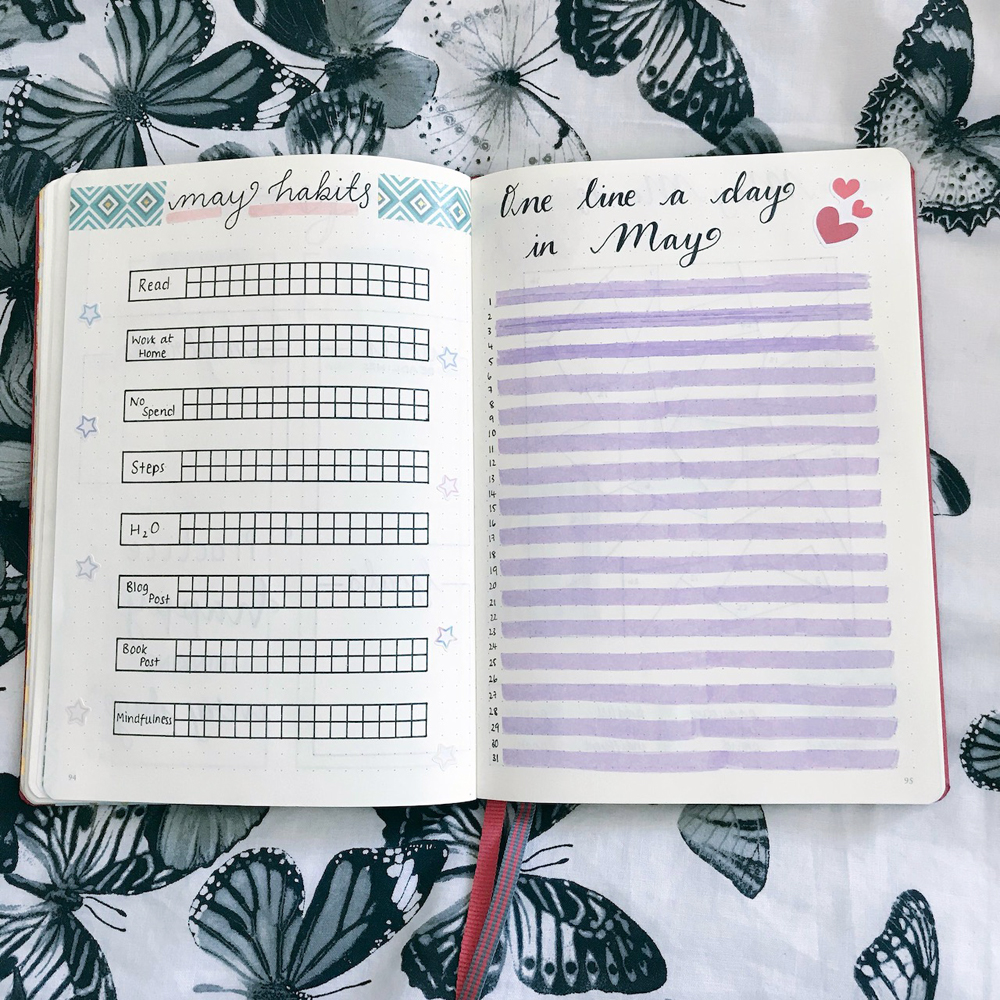 may habits
Read
Work at
Home
No
Spend
Steps
H₂O
Blog
Post
Book
Post
Mindfulness
94
One line a day
in May
1
2
3
4
5
6
7
8
9
10
11
12
13
14
15
16
17
18
19
20
21
22
23
24
25
26
27
28
29
30
31
95